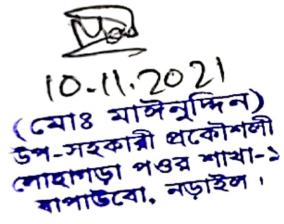 10.11.2021
(মোঃ মাঈনুদ্দিন)
উপ-সহকারী প্রকৌশলী
লোহাগড়া পওর শাখা-১
বাপাউবো, নড়াইল।